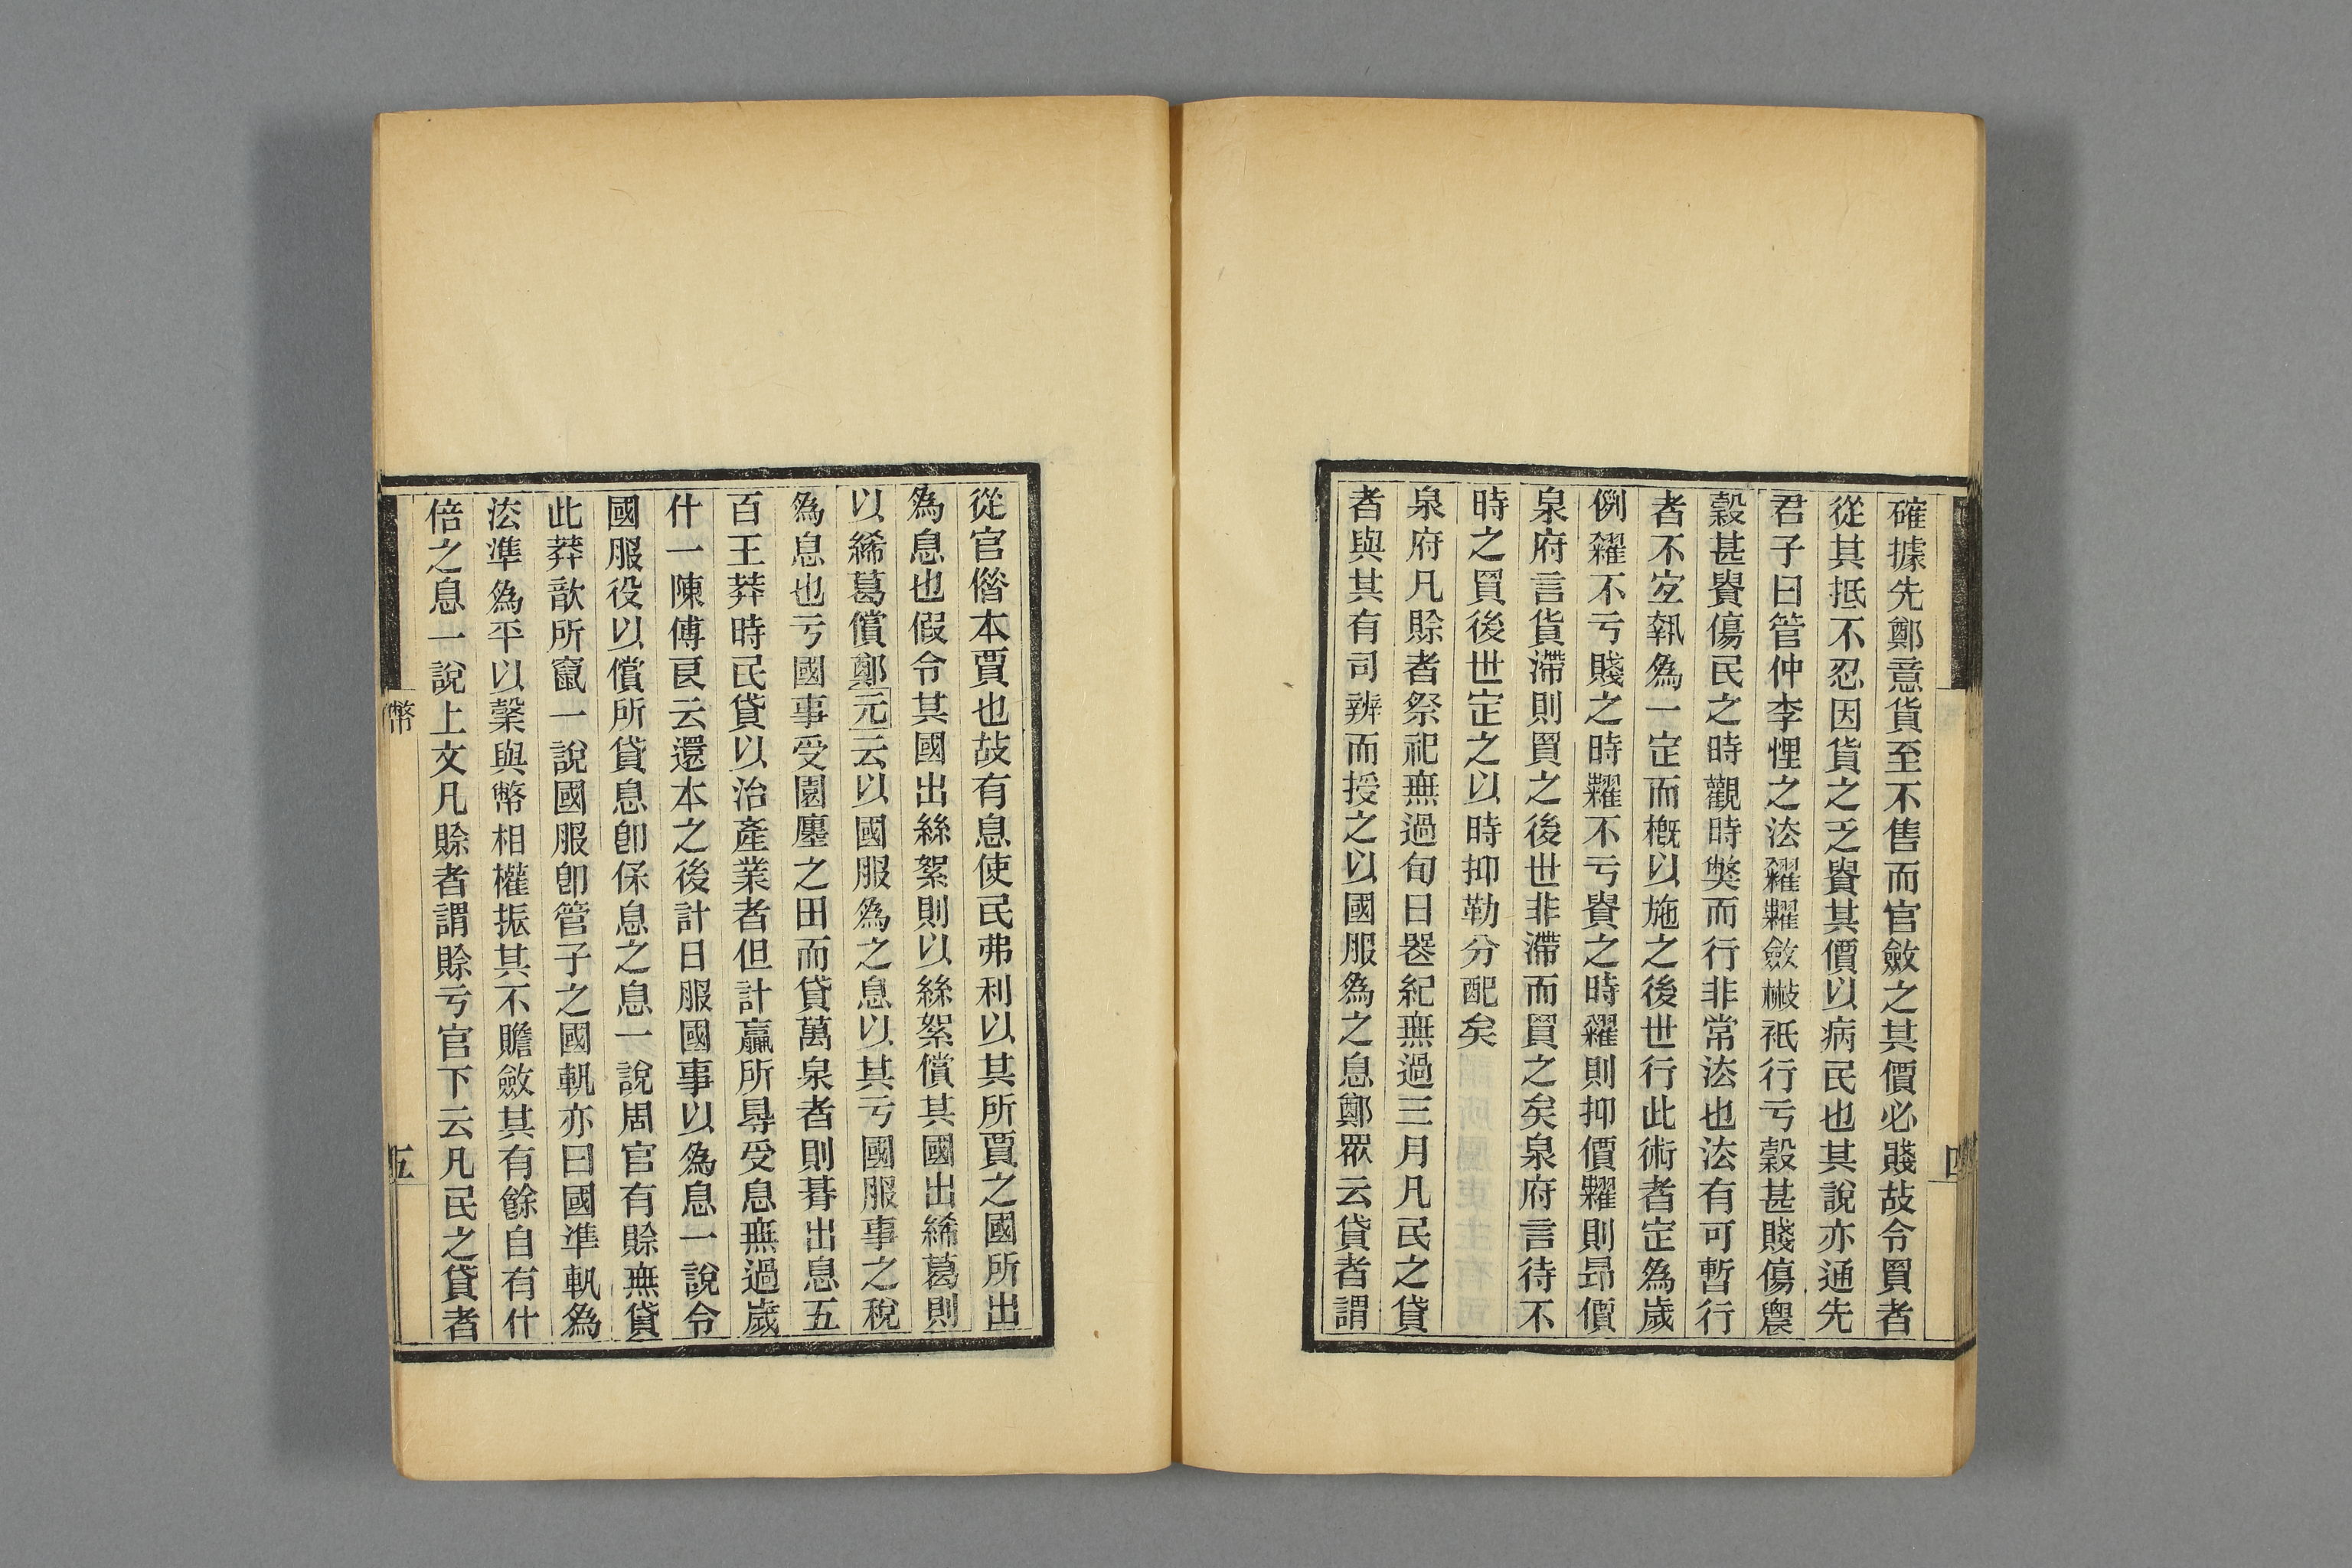 確據先鄭意貨至不售而官斂之其價必賤故令買者
從其抵不忍因貨之乏貴其價以病民也其說亦通先
君子曰管仲李悝之法糴糶斂㪚祇行亏穀甚賤傷農
穀甚貴傷民之時觀時獘而行非常法也法有可暫行
者不宐執爲一定而槪以施之後世行此術者定爲歲
例糴不亏賤之時糶不亏貴之時糴則抑價糶則昻價
泉府言貨滯則買之後世非滯而買之矣泉府言待不
時之買後世定之以時抑勒分配矣
泉府凡賒者祭祀無過旬日器紀無過三月凡民之貸
者與其有司辨而授之以國服爲之息鄭眾云貸者謂
從官借本賈也故有息使民弗利以其所賈之國所出
爲息也假令其國出絲絮則以絲絮償其國出絺葛則
以絺葛償鄭元云以國服爲之息以其亏國服事之稅
爲息也亏國事受園廛之田而貸萬泉者則朞出息五
百王莽時民貸以治產業者但計贏所㝵受息無過歲
什一陳傅良云還本之後計日服國事以爲息一說令
國服役以償所貸息卽保息之息一說周官有賒無貸
此莽歆所竄一說國服卽管子之國軌亦曰國準軌爲
法準爲平以槩與幣相權振其不贍斂其有餘自有什
倍之息一說上文凡賒者謂賒亏官下云凡民之貸者
幣
五